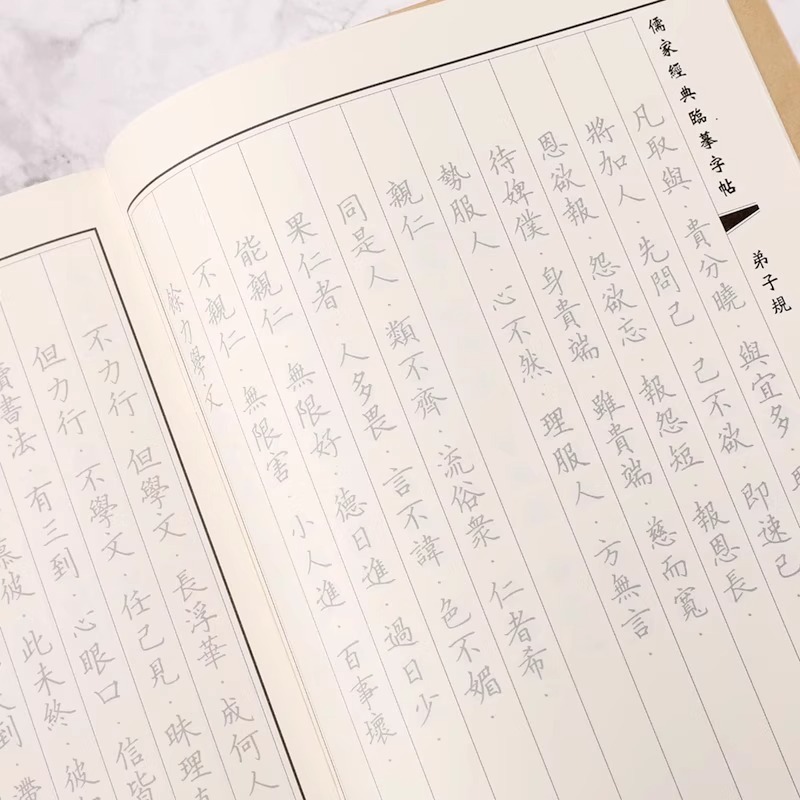 儒家經典臨摹字帖
弟子規
凡取與·貴分曉·與宜多·
將加人·先問己·己不欲·即速已
恩欲報·怨欲忘·報怨短·報恩長·
待婢僕·身貴端·雖貴端·慈而寬·
勢服人·心不然·理服人·方無言·
親仁
同是人·類不齊·流俗衆·仁者希·
果仁者·人多畏·言不諱·色不媚·
能親仁·無限好·德日進·過日少·
不親仁·無限害·小人進·百事壞
餘力學文
不力行·但學文·長浮華·成何人
但力行·不學文·任己見·昧理
讀書法·有三到·心眼口·信皆
慕彼·此未終·彼
到·滯